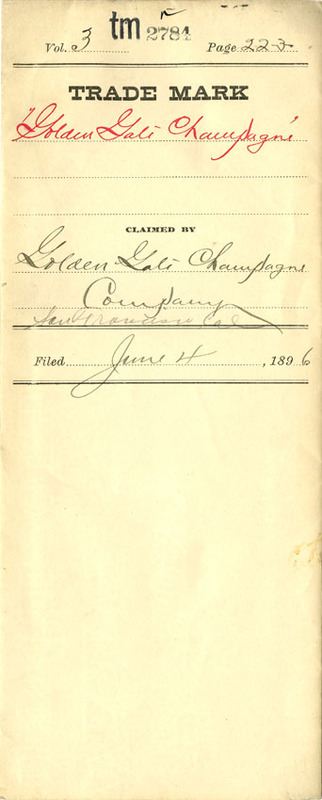 tm 2784
Vol. 3 Page 223
TRADE MARK
"Golden Gate Champagne"
CLAIMED BY
Golden Gate Champagne
Company
San Francisco Cal
Filed June 4, 1896